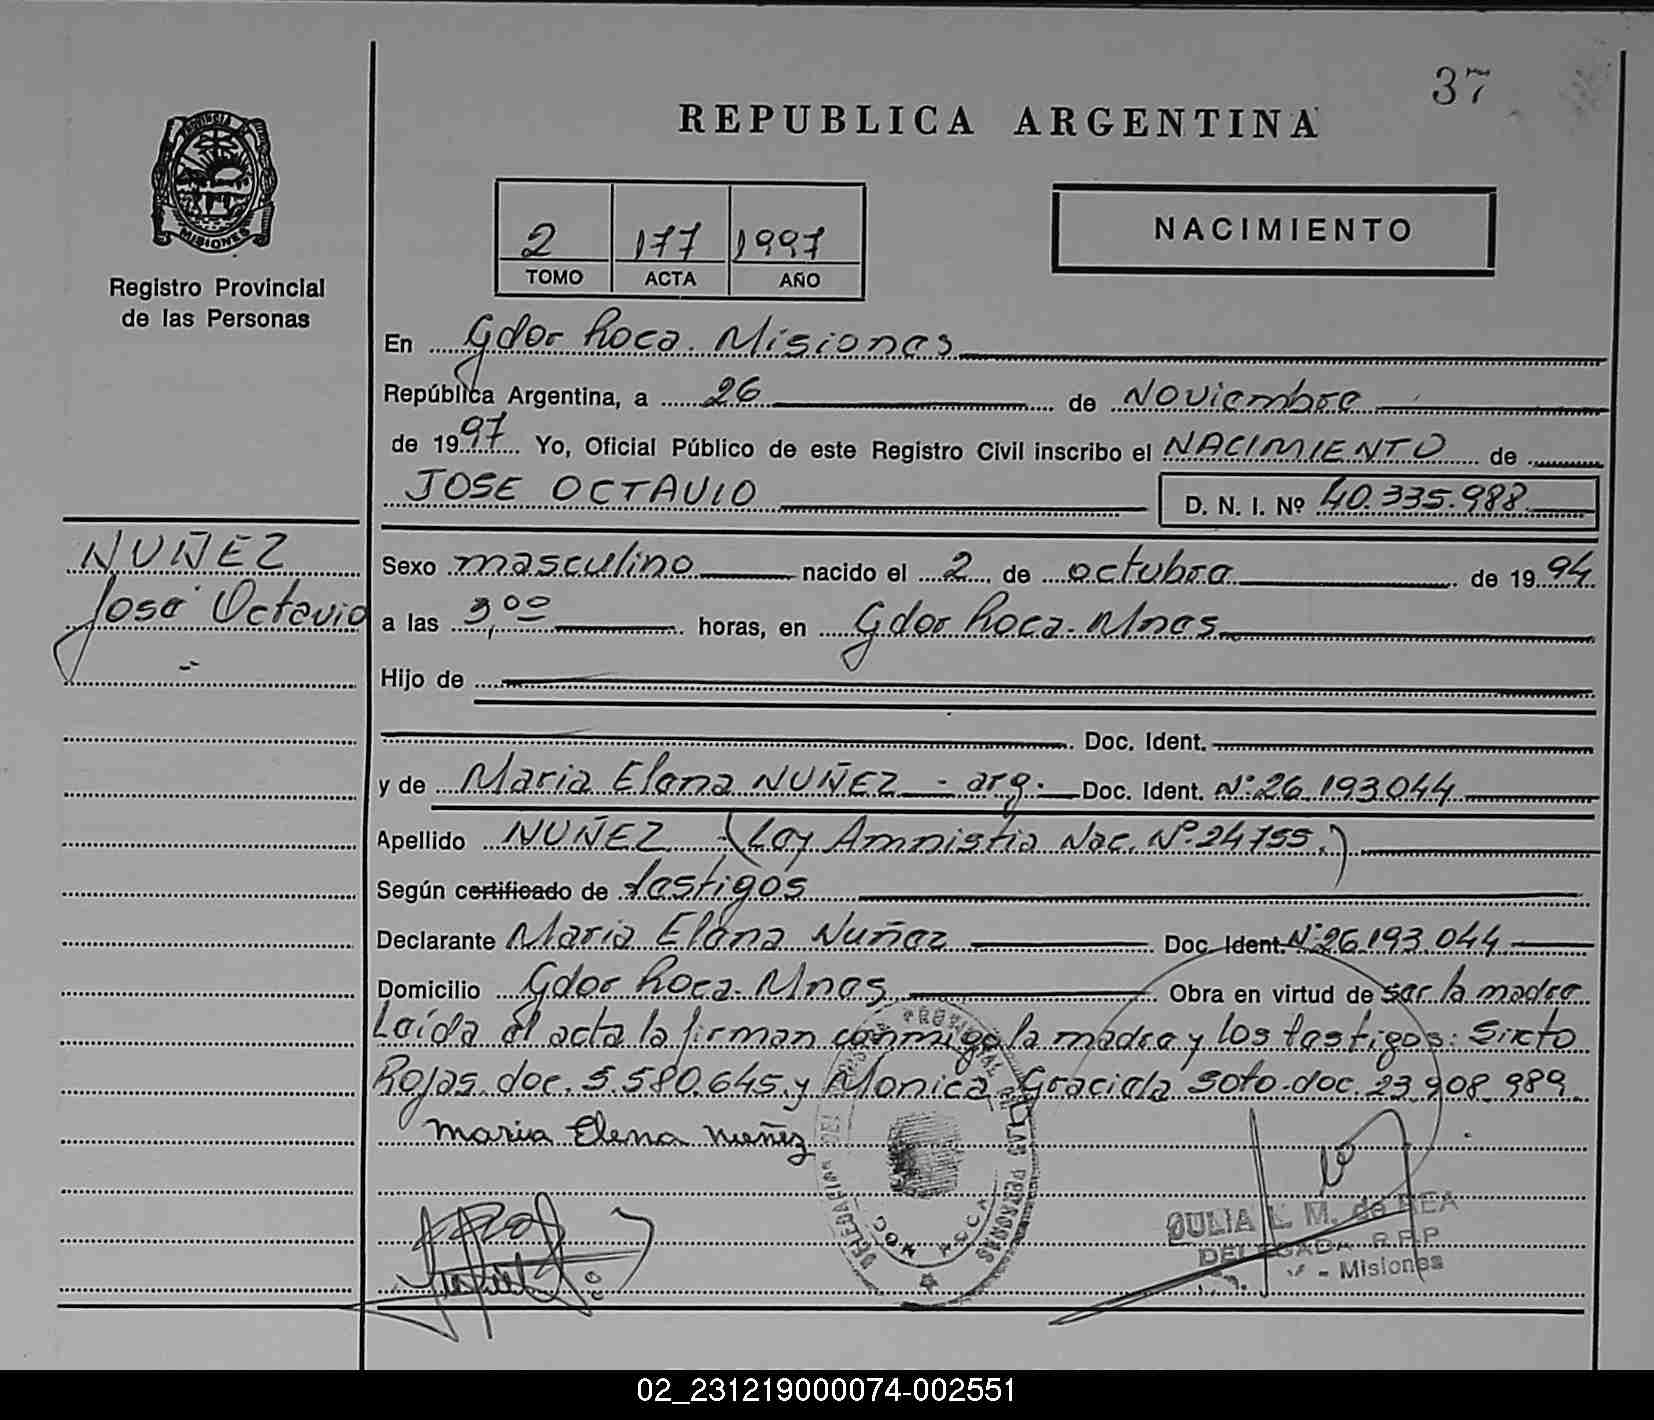 37
REPUBLICA ARGENTINA
PROVINCIA DE
MISIONES
Registro Provincial
de las Personas
2 177 1997
TOMO ACTA AÑO
NACIMIENTO
En Gdor Roca. Misiones
República Argentina, a 26 de Noviembre
de 1997 Yo, Oficial Público de este Registro Civil inscribo el NACIMIENTO de
JOSE OCTAVIO D. N. I. Nº 40.335.988
NUÑEZ
José Octavio
Sexo masculino nacido el 2 de octubre de 1994
a las 9,00 horas, en Gdor Roca. Mnes
Hijo de
Doc. Ident.
y de Maria Elena NUÑEZ - arg. Doc. Ident. Nº 26.193.044
Apellido NUÑEZ (Ley Amnistia Nac. Nº 24755.)
Según certificado de testigos
Declarante Maria Elena Nuñez Doc. Ident. Nº 26.193.044
Domicilio Gdor Roca. Mnes Obra en virtud de ser la madre
Leída el acta la firman conmigo la madre y los testigos: Sixto
Rojas doc. 5.580.645 y Monica Graciela Soto doc. 23.908.989
Maria Elena Nuñez
PROVINCIAL DE LAS PERSONAS
DELEGACION
ROCA
JULIA L. M. de REA
DELEGADA R.P.P
- Misiones
02_231219000074-002551